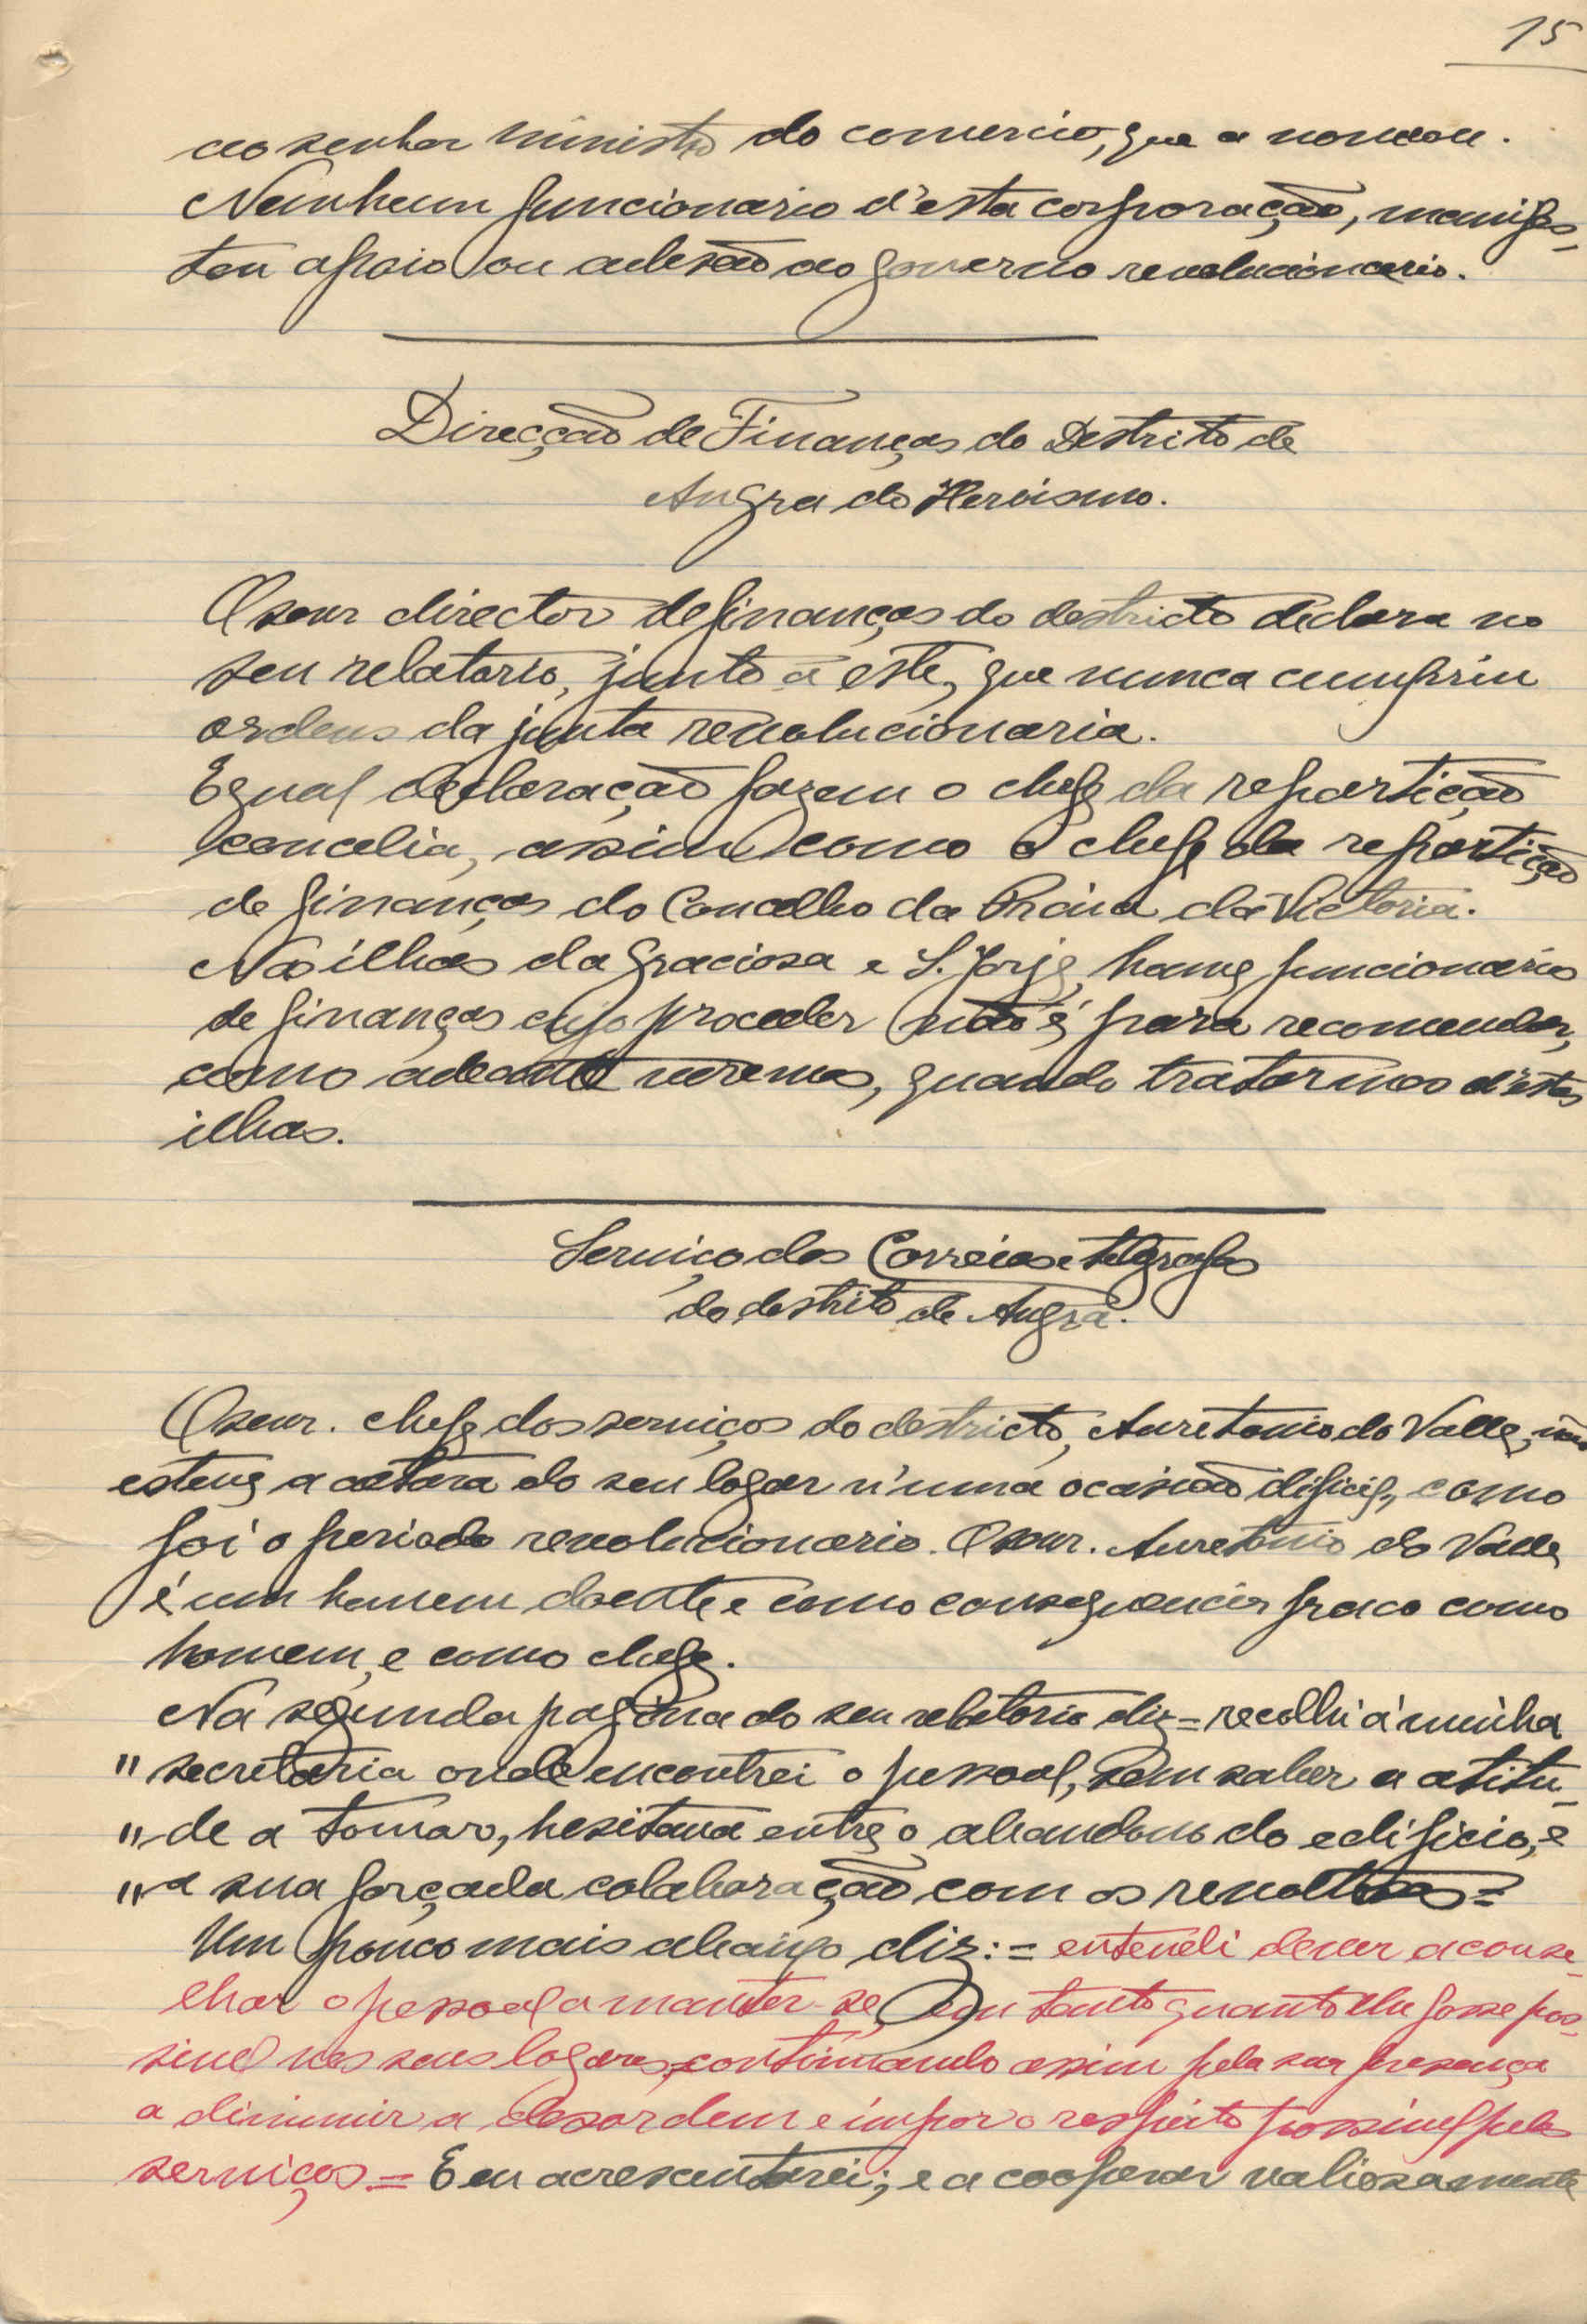 15
ao senhor ministro do comercio, que a nomeou.
Nenhum funcionario d'esta corporação, manifes-
tou apoio ou adesão ao governo revolucionario.
Direcção de Finanças do Destrito de
Angra do Heroismo.
O senr director de finanças do destricto declara no
seu relatorio, junto a este, que nunca cumpriu
ordens da junta revolucionaria.
Egual declaração fazem o chefe da repartição
concelia, assim como o chefe da repartição
de finanças do Concelho da Praia da Victoria.
Nas ilhas da Graciosa e S. Jorge, houve funcionarios
de finanças cujo proceder não é para recomendar,
como adeante veremos, quando tratarmos d'estas
ilhas.
Serviço dos Correios e telegrafos
do destrito de Angra.
O senr. chefe dos serviços do destricto, Auretonio do Valle, não
esteve a altura do seu logar n'uma ocasião dificil, como
foi o periodo revolucionario. O senr. Auretonio do Valle
é um homem doente e como consequencia fraco como
homem, e como chefe.
Na segunda pagina do seu relatorio diz = recolhi á minha
" secretaria onde encontrei o pessoal, sem saber a atitu-
" de a tomar, hesitava entre o abandono do edificio, e
" a sua forçada colaboração com os revoltosos =
Um pouco mais abaixo diz: = entendi dever aconse-
lhar o pessoal a manter-se, em tanto quanto lhe fosse pos-
sivel nos seus logares, continuando assim pela sua presença
a diminuir a desordem e impor o respeito possivel pelos
serviços. = E eu acrescentarei; e a cooperar valiosamente